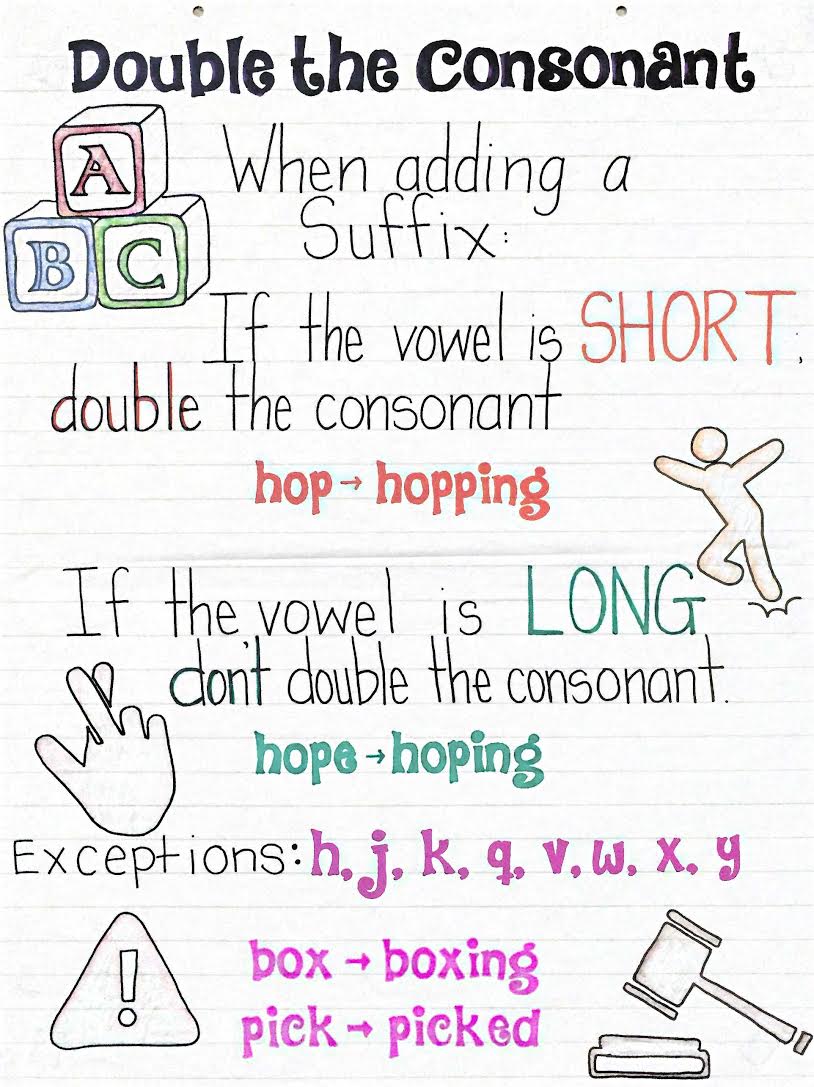 Double the Consonant
A
When adding a
Suffix:
B C
If the vowel is SHORT,
double the consonant
hop → hopping
If the vowel is LONG
don't double the consonant.
hope → hoping
Exceptions: h, j, k, q, v, w, x, y
box → boxing
pick → picked